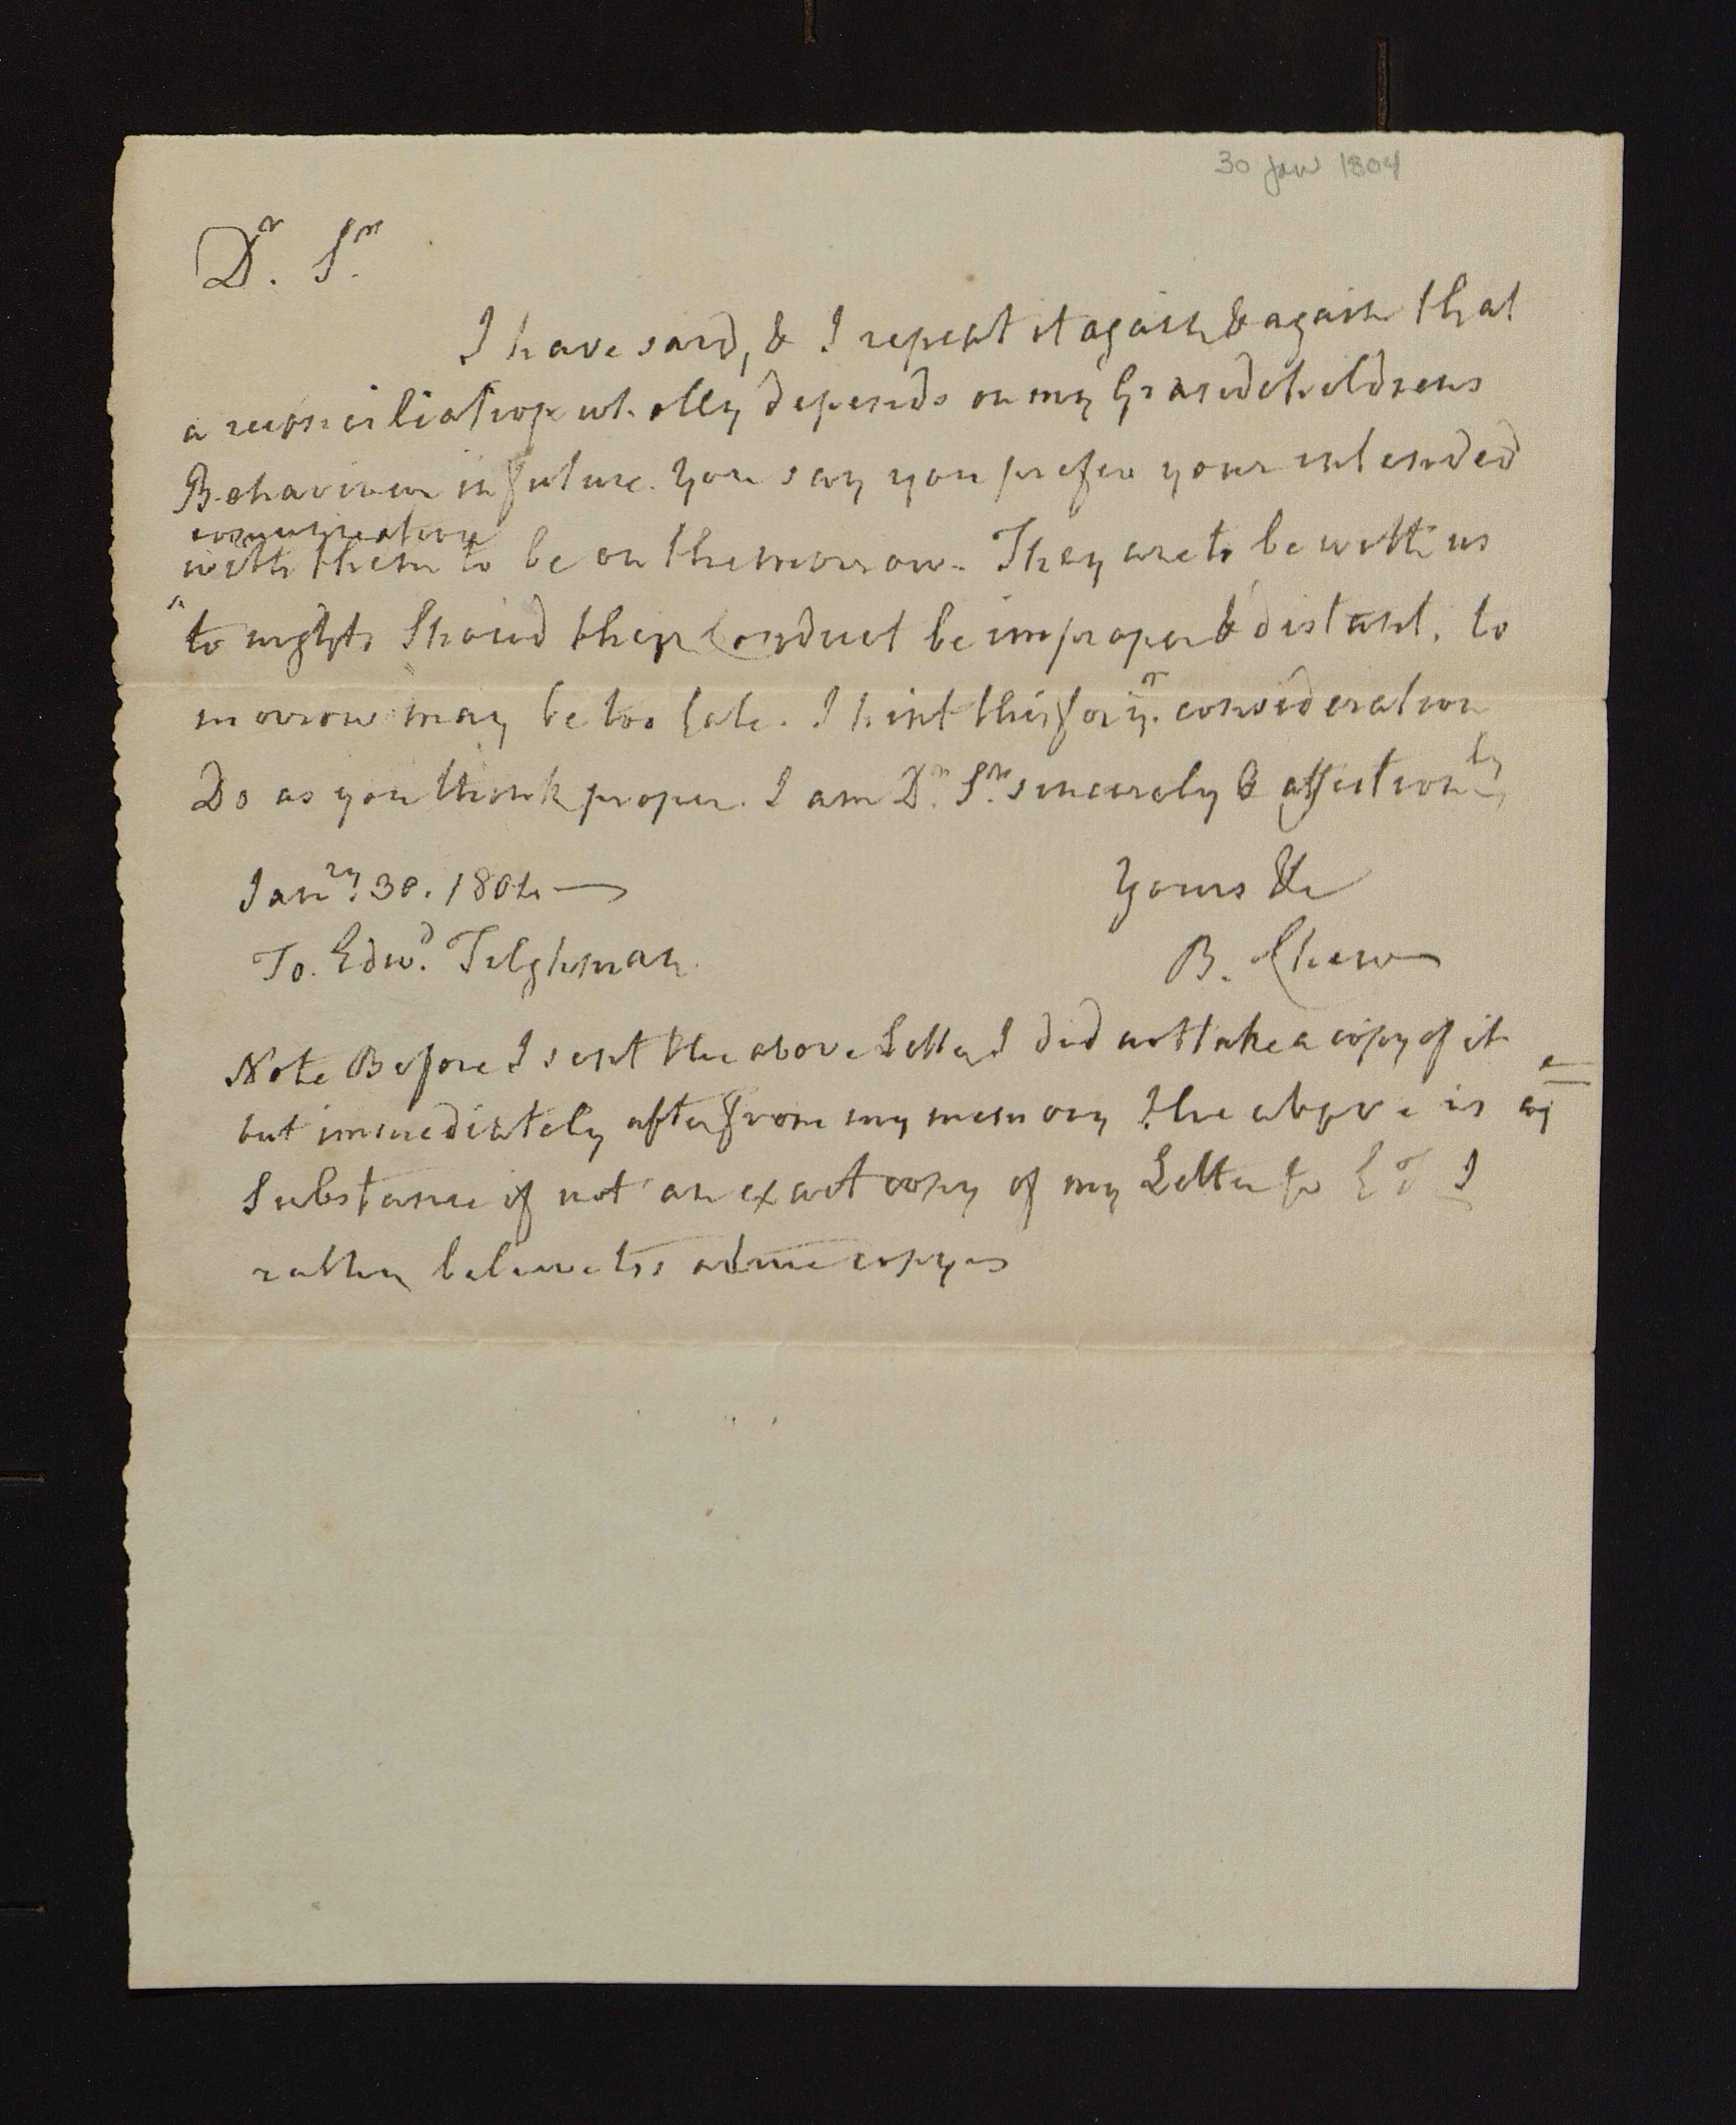 30 Jan 1804
Dr. Sr.
I have said, & I repeat it again & again that
a reconciliation wholly depends on my Grandchildrens
Behaviour in future. You say you prefer your intended
communication
with them to be on the morrow. They are to be with us
to night, Shoud their Conduct be improper & distant, to
morrow may be too late. I hint this for yr. consideration
Do as you think proper. I am Dr. Sr. sincerely & affectionly
Janry. 30. 1804
Yours &c
To. Edwd. Tilghman
B. Chew
Note Before I sent the above Letter I did not take a copy of it
but immediately after from my memory, the above is
Substance if not an exact copy of my Letter to E T I
rather believe tis a true copy